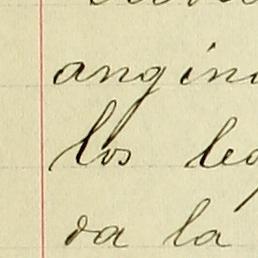 angin
los leg
da la